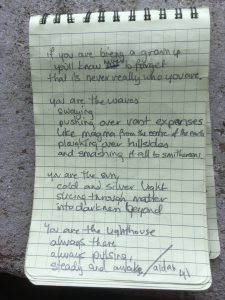 if you are being a grown up
you'll know to forget
that is never really who you are.
you are the waves
swaying
pushing over vast expenses
like magma from the centre of the earth
ploughing over hillsides
and smashing it all to smithereens
you are the sun,
cold and silver light
slicing through matter
into darkness beyond
you are the lighthouse
always there
always pulsing,
steady and awake